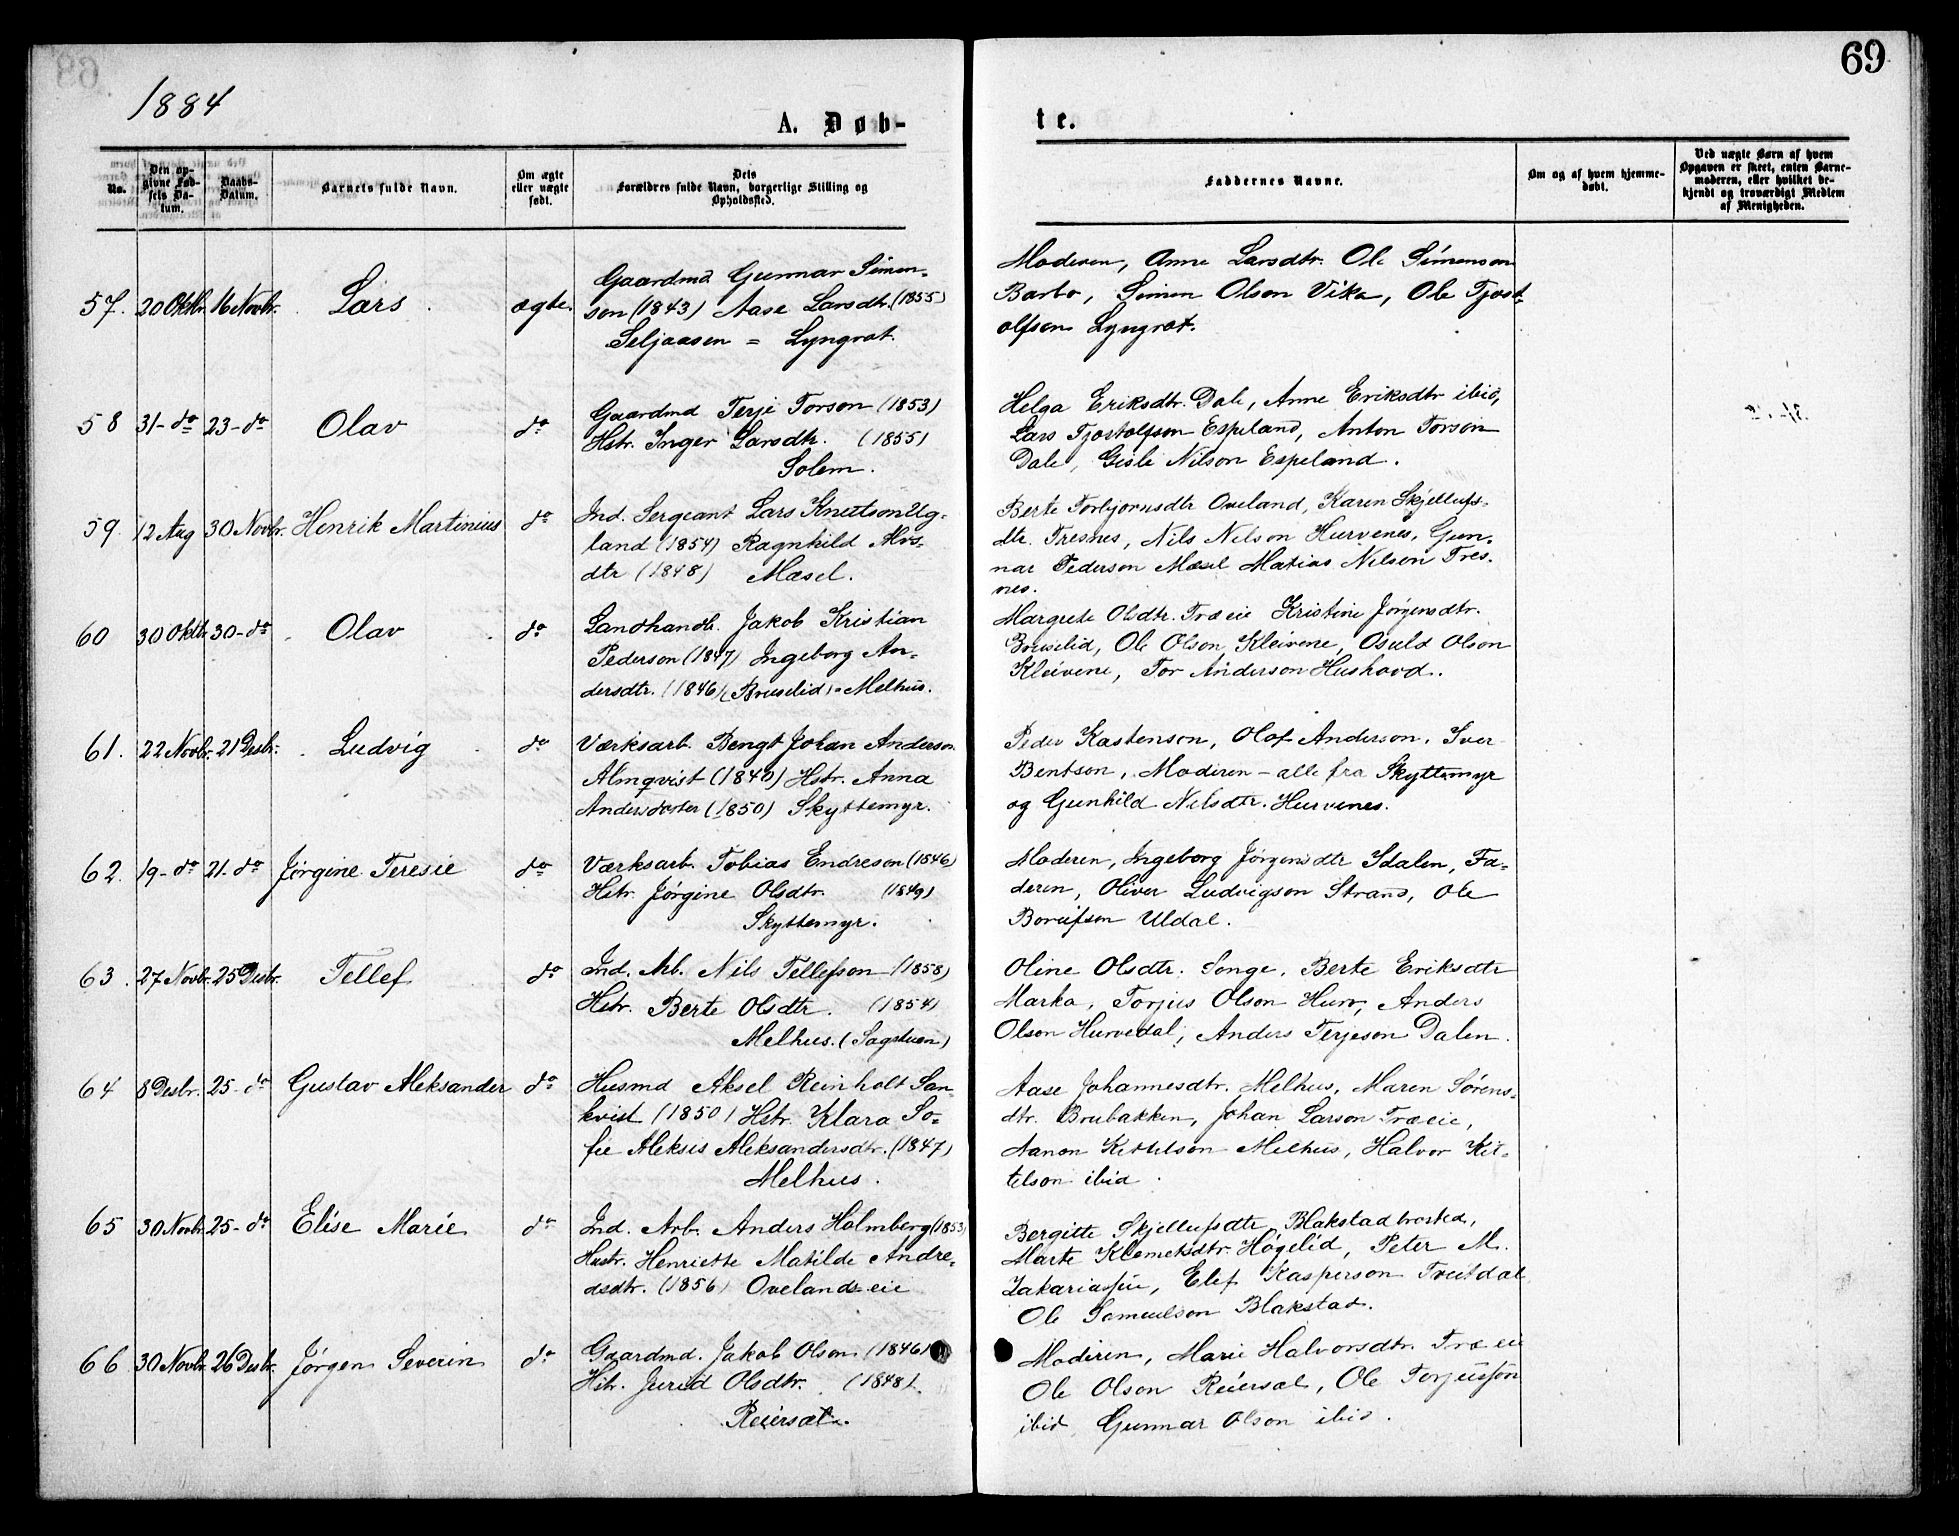 69
1884
A. Døb-
te.
No.
Den op-
givne Fød-
sels Da-
tum.
Daabs-
Datum.
Barnets fulde Navn.
Om ægte
eller uægte
født.
Dets
Forældres fulde Navn, borgerlige Stilling og
Opholdssted.
Faddernes Navne.
Om og af hvem hjemme-
døbt.
Ved uægte Børn af hvem
Opgaven er skeet, enten Barne-
moderen, eller hvilket be-
kjendt og troværdigt Medlem
af Menigheden.
57. 20 Oktbr. 16 Novbr. Lars ægte.
Gaardmd Gunnar Simon-
son (1843) Aase Larsdtr. (1855)
Seljaasen = Lyngrot.
Moderen, Anne Larsdtr. Ole Simonson
Barbo, Simon Olson Vika, Ole Tjost-
olfson Lyngrot.
58 31- do 23- do Olav do
Gaardmd Terje Torson (1853)
Hstr. Inger Larsdtr. (1855)
Solem.
Helga Eriksdtr. Dale, Anne Eriksdtr ibid,
Lars Tjostolfson Espeland, Anton Torson
Dale, Gisle Nilson Espeland.
59. 12 Aug 30 Novbr. Henrik Martinius do
Ind. Sergeant Lars Knutson Ug-
land (1854) Ragnhild Alvs-
dtr (1848) Mæsel.
Berte Torbjørnsdtr Oveland, Karen Skjellufs-
dtr. Tresnes, Nils Nilson Hurvenes, Gun-
nar Pederson Mæsel Matias Nilson Tres-
nes.
60 30 Oktbr 30- do Olav do
Landhandl. Jakob Kristian
Pederson (1847) Ingeborg An-
dersdtr. (1846) (Bruselid) = Melhus.
Margrete Olsdtr. Træeie Kristine Jørgensdtr.
Bruselid, Ole Olson Kleivene, Osuld Olson
Kleivene, Tor Anderson Hushovd.
61. 22 Novbr. 21 Desbr. Ludvig do
Værksarb. Bengt Johan Anderson
Almqvist (1840) Hstr. Anna
Andersdoter (1850) Skyttemyr.
Peder Kastenson, Olof Anderson, Iver
Bentson, Moderen - alle fra Skyttemyr
og Gunhild Nilsdtr. Hurvenes.
62. 19- do 21- do Jørgine Teresie do
Værksarb. Tobias Endreson (1846)
Hstr. Jørgine Olsdtr. (1849)
Skyttemyr.
Moderen, Ingeborg Jørgensdtr Idalen, Fa-
deren, Oliver Ludvigson Strand, Ole
Boruifson Uldal.
63. 27 Novbr. 25 Desbr. Tellef do
Ind. Arb. Nils Tellefson (1858)
Hstr. Berte Olsdtr. (1854)
Melhus. (Sagstuen)
Oline Olsdtr. Songe, Berte Eriksdtr
Marka, Torjus Olson Hurv, Anders
Olson Hurvedal, Anders Terjeson Dalen.
64 8 Desbr. 25- do Gustav Aleksander do
Husmd Aksel Reinholt San-
kvist (1850) Hstr. Klara So-
fie Aleksis Aleksandersdtr. (1847)
Melhus.
Aase Johannesdtr. Melhus, Maren Sørens-
dtr. Brubakken, Johan Larson Træeie,
Aanon Kittelson Melhus, Halvor Kit-
telson ibid.
65 30 Novbr 25- do Elise Marie do
Ind. Arb. Anders Holmberg (1853)
Hustr. Henriette Matilde Andre-
dsdtr. (1856) Ovelandseie
Bergitte Skjellufsdtr, Blakstadbrosted,
Marte Klemetsdtr. Høgelid, Peter M.
Zakariassen, Elef Kasperson Tveitdal,
Ole Samuelson Blakstad.
66 30 Novbr 26 Desbr. Jørgen Severin do
Gaardmd. Jakob Olson (1846)
Hstr. Jurid Olsdtr. (1848).
Reiersøl.
Moderen, Marie Halvorsdtr. Træeie
Ole Olson Reiersøl, Ole Torjusson
ibid, Gunnar Olson ibid.